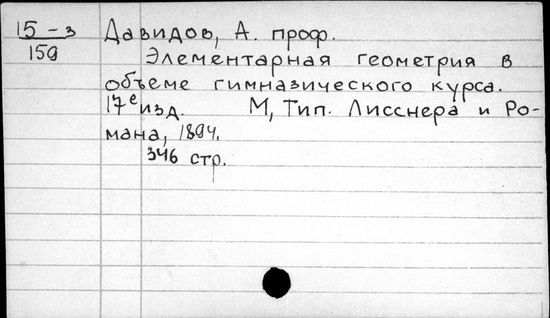 15 - з
159
Давидов, А. проф.
Элементарная геометрия в
объеме гимназического курса.
17е изд. М, Тип. Лисснера и Ро-
мана, 1894.
346 стр.